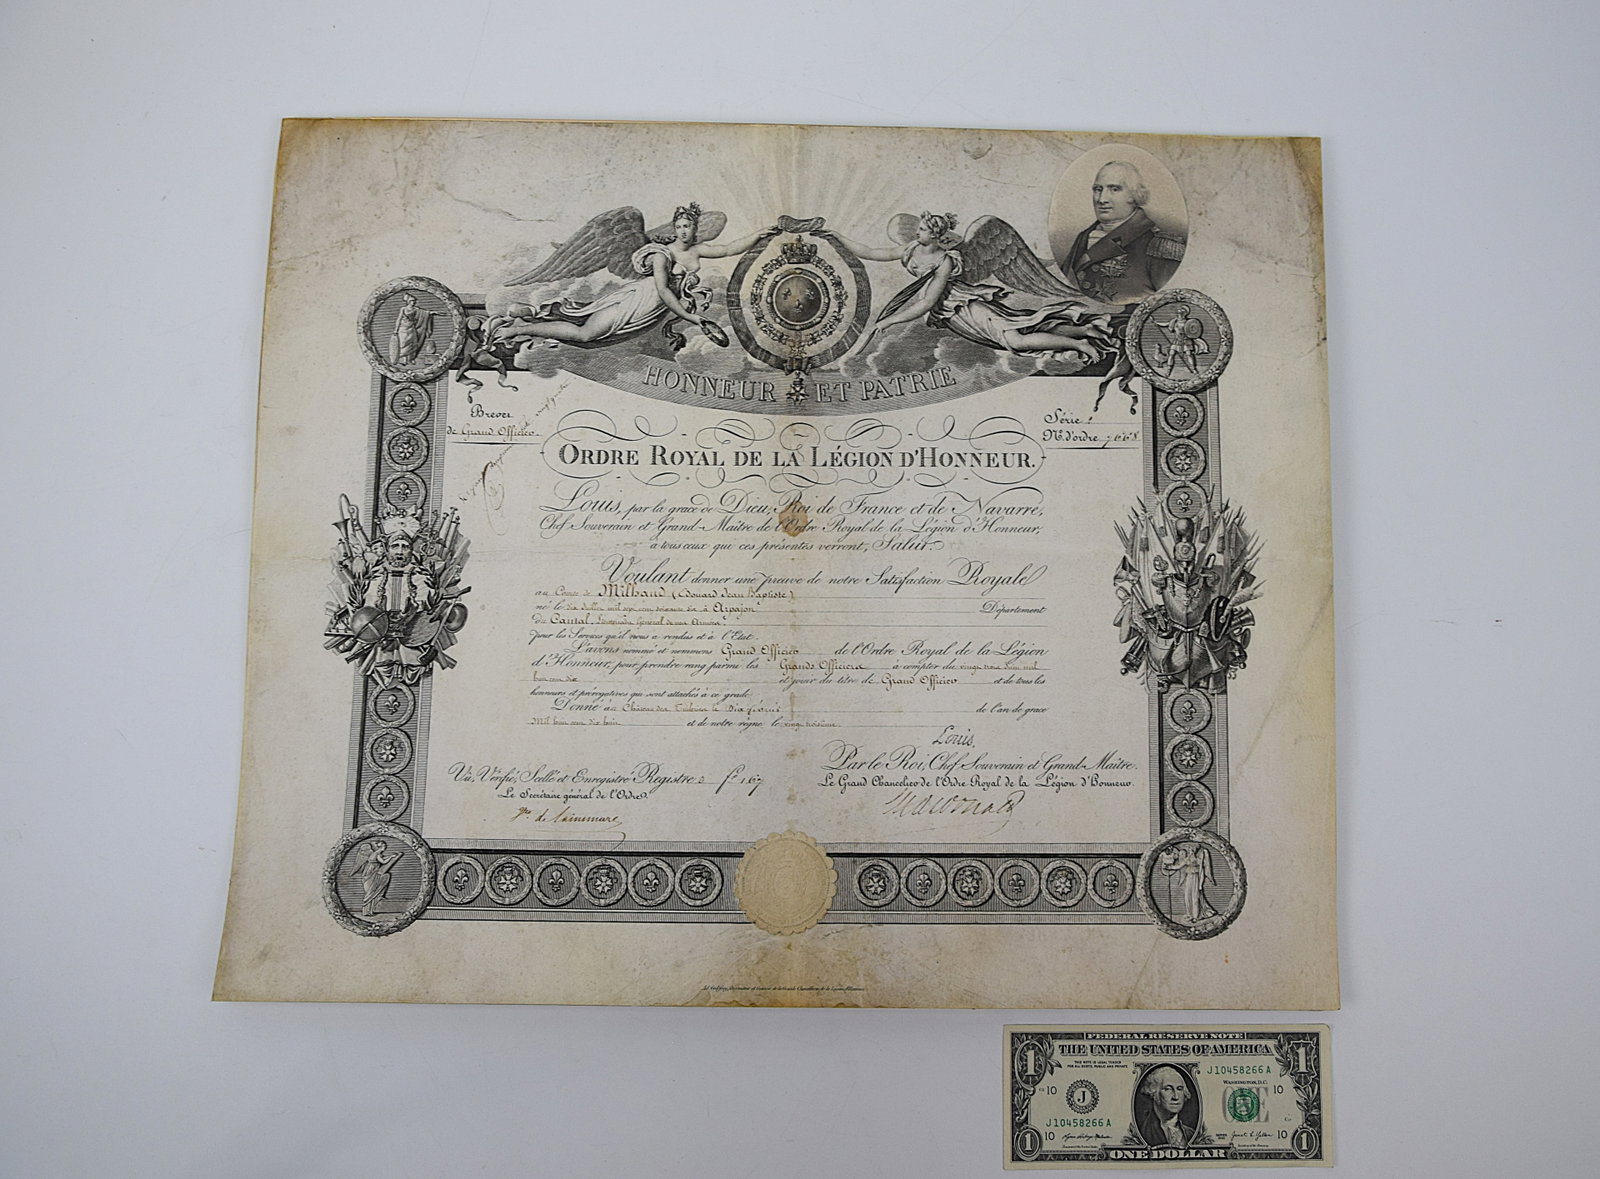 HONNEUR ET PATRIE
Brevet
de Grand Officier.
Série
N.º d'ordre 7668
ORDRE ROYAL DE LA LÉGION D'HONNEUR.
Louis, par la grace de Dieu, Roi de France et de Navarre,
Chef Souverain et Grand-Maître de l'Ordre Royal de la Légion d'Honneur,
à tous ceux qui ces présentes verront, Salut.
Voulant donner une preuve de notre Satisfaction Royale
au Comte de Milhaud (Edouard Jean Baptiste)
né le dix Juillet mil sept cent soixante six à Arpajon Département
du Cantal, Lieutenant Général de nos Armées
pour les Services qu'il nous a rendus et à l'Etat.
L'avons nommé et nommons Grand Officier de l'Ordre Royal de la Légion
d'Honneur, pour prendre rang parmi les Grands Officiers à compter du vingt trois Juin mil
huit cent dix et jouir du titre de Grand Officier et de tous les
honneurs et prérogatives qui sont attachés à ce grade.
Donné au Château des Tuileries le Dix de l'an de grace
Mil huit cent dix huit et de notre règne le vingt troisième.
Louis.
Par le Roi, Chef Souverain et Grand-Maître.
Le Grand Chancelier de l'Ordre Royal de la Légion d'Honneur.
Macdonald
Vu, Vérifié, Scellé et Enregistré Registre 2 fº 167
Le Secrétaire général de l'Ordre.
Vte de Sainemare
Ad. Godfroy, de la Grande Chancellerie de la Légion d'Honneur
FEDERAL RESERVE NOTE
THE UNITED STATES OF AMERICA
THIS NOTE IS LEGAL TENDER
FOR ALL DEBTS, PUBLIC AND PRIVATE
J 10458266 A
WASHINGTON, D.C.
1 1
10 J 10
J 10458266 A
10 10
1 ONE DOLLAR 1